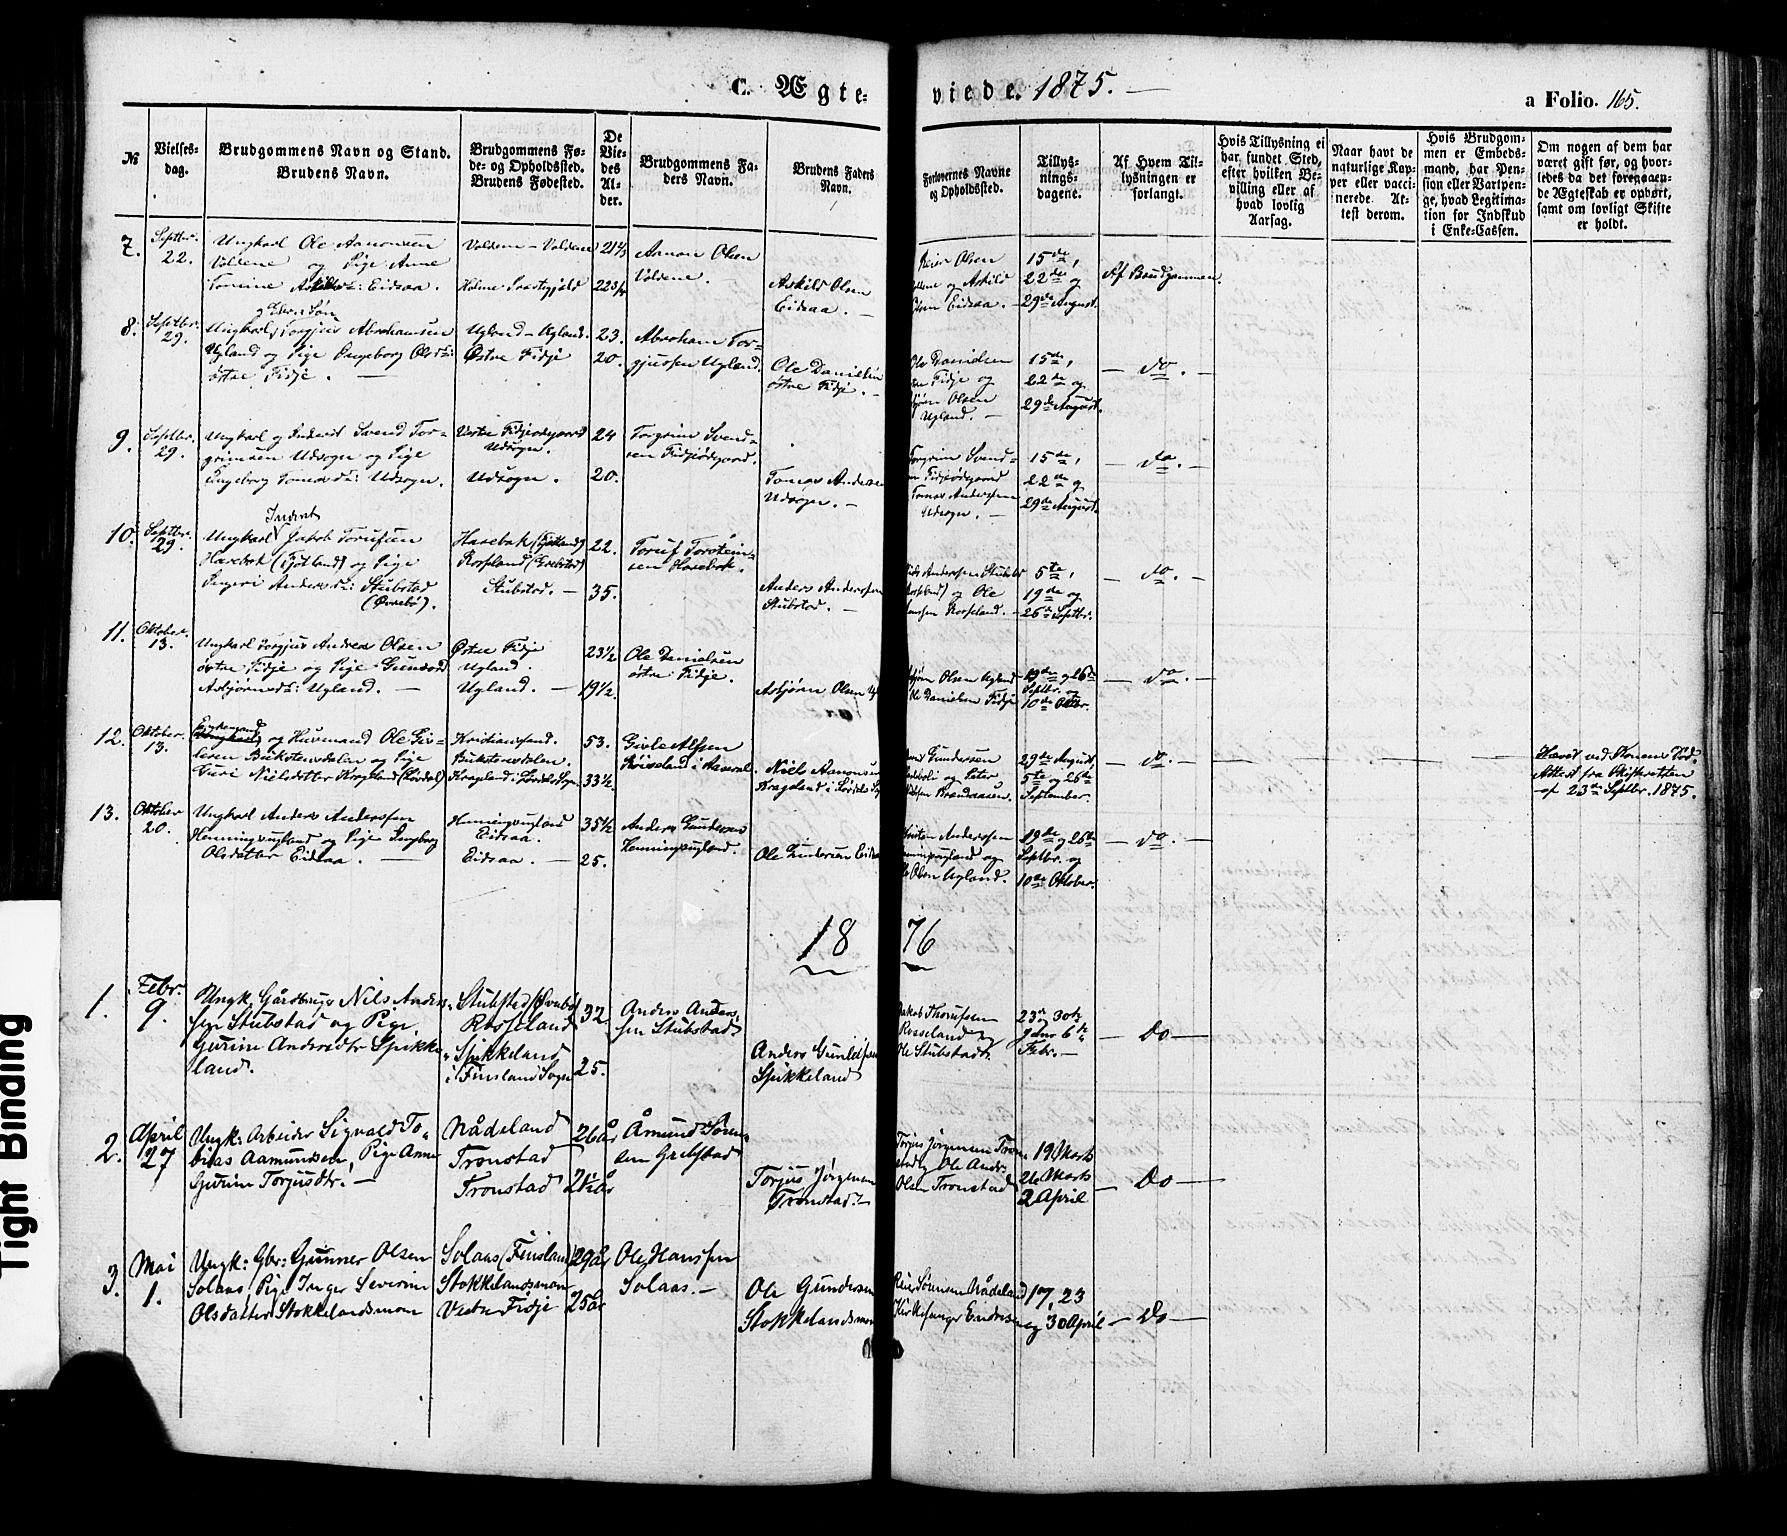 C. Ægte-
viede. 1875. —
a Folio. 165.
№
Vielses-
dag.
Brudgommens Navn og Stand.
Brudens Navn.
Brudgommens Fø-
de- og Opholdssted.
Brudens Fødested.
De
Vie-
des
Al-
der.
Brudgommens Fa-
ders Navn.
Brudens Faders
Navn.
Forlovernes Navne
og Opholdssted.
Tillys-
nings-
dagene.
Af Hvem Til-
lysningen er
forlangt.
Hvis Tillysning ei
har fundet Sted,
efter hvilken Be-
villing eller af
hvad lovlig
Aarsag.
Naar havt de
naturlige Kop-
per eller vacci-
nerede At-
test derom.
Hvis Brudgom-
men er Embeds-
mand, har Pen-
sion eller Vartpen-
ge, hvad Legitima-
tion for Indskud
i Enke-Cassen.
Om nogen af dem har
været gift før, og hvor-
ledes da det foregaaen-
de Ægteskab er ophørt,
samt om lovligt Skifte
er holdt.
7.
Septbr.
22.
Ungkarl Ole Aanonsen
Voldene og Pige Anne
Tomine Askildsd: Eidsaa. —
Voldene - Voldene
21½
22¾
Aanon Olsen
Voldene —
Askild Olsen
Eidsaa. —
Reier Olsen
og Askild
Olsen Eidsaa. —
15de,
22de og
29de August.
Af Brudgommen.
8.
Septbr.
29.
Ungkarl Torgjus Abrahamsen
Ugland og Pige Ingeborg Olsd:
østre Fidje. —
Ugland - Ugland.
Østre Fidje
23.
20.
Abraham Tor-
gjusen Ugland.
Ole Danielsen
østre Fidje. —
Ole Danielsen
Fidje og
Olsen
Ugland. —
15de,
22de og
29de August.
— do. —
9.
Septbr.
29.
Ungkarl og Inderst Svend Tor-
grimsen Udsogn og Pige
Ingeborg Tomasd: Udsogn.
Vestre Fidjeødegaard
Udsogn.
Udsogn.
24
20.
Torgrim Svend-
sen Fidjeødegaard.
Tomas Andersen
Udsogn. —
Torgrim Svend-
Fidjeødegaard
Tomas Anderssen
Udsogn. —
15de,
22de og
29de August.
— do. —
10.
Septbr.
29.
Inderst
Ungkarl Jakob Torufsen
Hasebak (Fjotland) og Pige
Ingeri Andersd: Stubstad
(Øvrebø).
Hasebak (Fjotland)
Rosseland (Grebstad)
Stubstad. —
22.
35.
Toruf Torstein-
sen Hasebak.
Anders Anderssen
Stubstad. —
Anderssen Stubstad
og Ole
Rosseland. —
5te,
19de og
26de Septbr.
— do. —
11.
Oktober
13.
Ungkarl Torgjus Andreas Olsen
østre Fidje og Pige Gunvord
Asbjørnsd: Ugland. —
Østre Fidje
Ugland.
Ugland. —
23½
19½.
Ole Danielsen
østre Fidje.
Asbjørn Olsen
Olsen Ugland
Danielsen Fidje
19de og 26de
Septbr. og
10de Oktbr.
— do. —
12.
Oktober
13.
Enkemand
Ungkarl og Husmand Ole Giv-
lesen Bukstensdalen og Pige
Guri Nielsdatter Kragland
Kristianssand.
Bukstensdalen.
53.
33½
Givle Alfsen
Niels Aanonsen
Kragland i
Gundersen
og Peter
29de August,
5te og 26de
September.
— do. —
Hævet ved Konens Død.
Attest fra Skifteretten
af 23de Septbr. 1875.
13.
Oktober
20.
Ungkarl Anders Anderssen
Henningsugland og Pige Ingeborg
Olsdatter Eidsaa. —
Henningsugland
Eidsaa
Eidsaa. —
35½
25.
Anders Gundersen
Henningsugland.
Ole Gundersen
Anderssen
og
Olsen Ugland.
19de og 26de
Septbr. og
10de Oktober.
— do. —
1876
1.
Febr.
9.
Ungk. Gårdbruger Nils Anders-
sen Stubstad og Pige
Gurine Andersdtr Spikke-
land.
Stubstad (Øvrebø)
Rosseland
Spikkeland
i Finsland Sogn
32
25.
Anders Anders-
sen Stubstad
Anders Gunlefsen
Spikkeland
Jakob Thorufsen
Rosseland og
Ole Stubstad.
23de, 30te
Janr 6te
Febr. —
— Do —
2.
April
27
Ungk: Arbeider Sigvald To-
bias Aamundsen, Pige Anne
Gurine Torjusdtr. —
Nådeland
Tronstad
Tronstad
26 år
21½ år
Åmund Søren-
sen Grebstad
Torjus Jørgensen
Tronstad. —
Torjus Jørgensen
og Ole Andr.
Olsen Tronstad
19 Marts
26 Marts
2 April
— Do —
3.
Mai
1.
Ungk: Gbr: Gunner Olsen
Solaas, Pige Inger Severine
Olsdatter Stokkelandsmoen
Solaas (Finsland)
Stokkelandsmoen
Vestre Fidje
29 år
25 år
Ole Hanssen
Solaas. —
Ole Gundersen
Stokkelandsmoen
Reier Sørensen Nådeland
Kirkesanger Endresen
17, 23
og 30 April
— Do —
Tight Binding